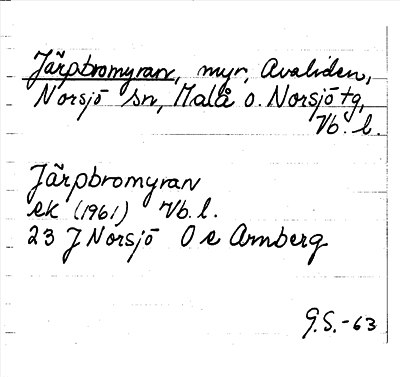 Järpbromyran, myr, Avaliden,
Norsjö sn, Malå o. Norsjö tg,
Vb. l.
Järpbromyran
ek (1961) Vb. l.
23 J Norsjö O e Arnberg
G.S.-63